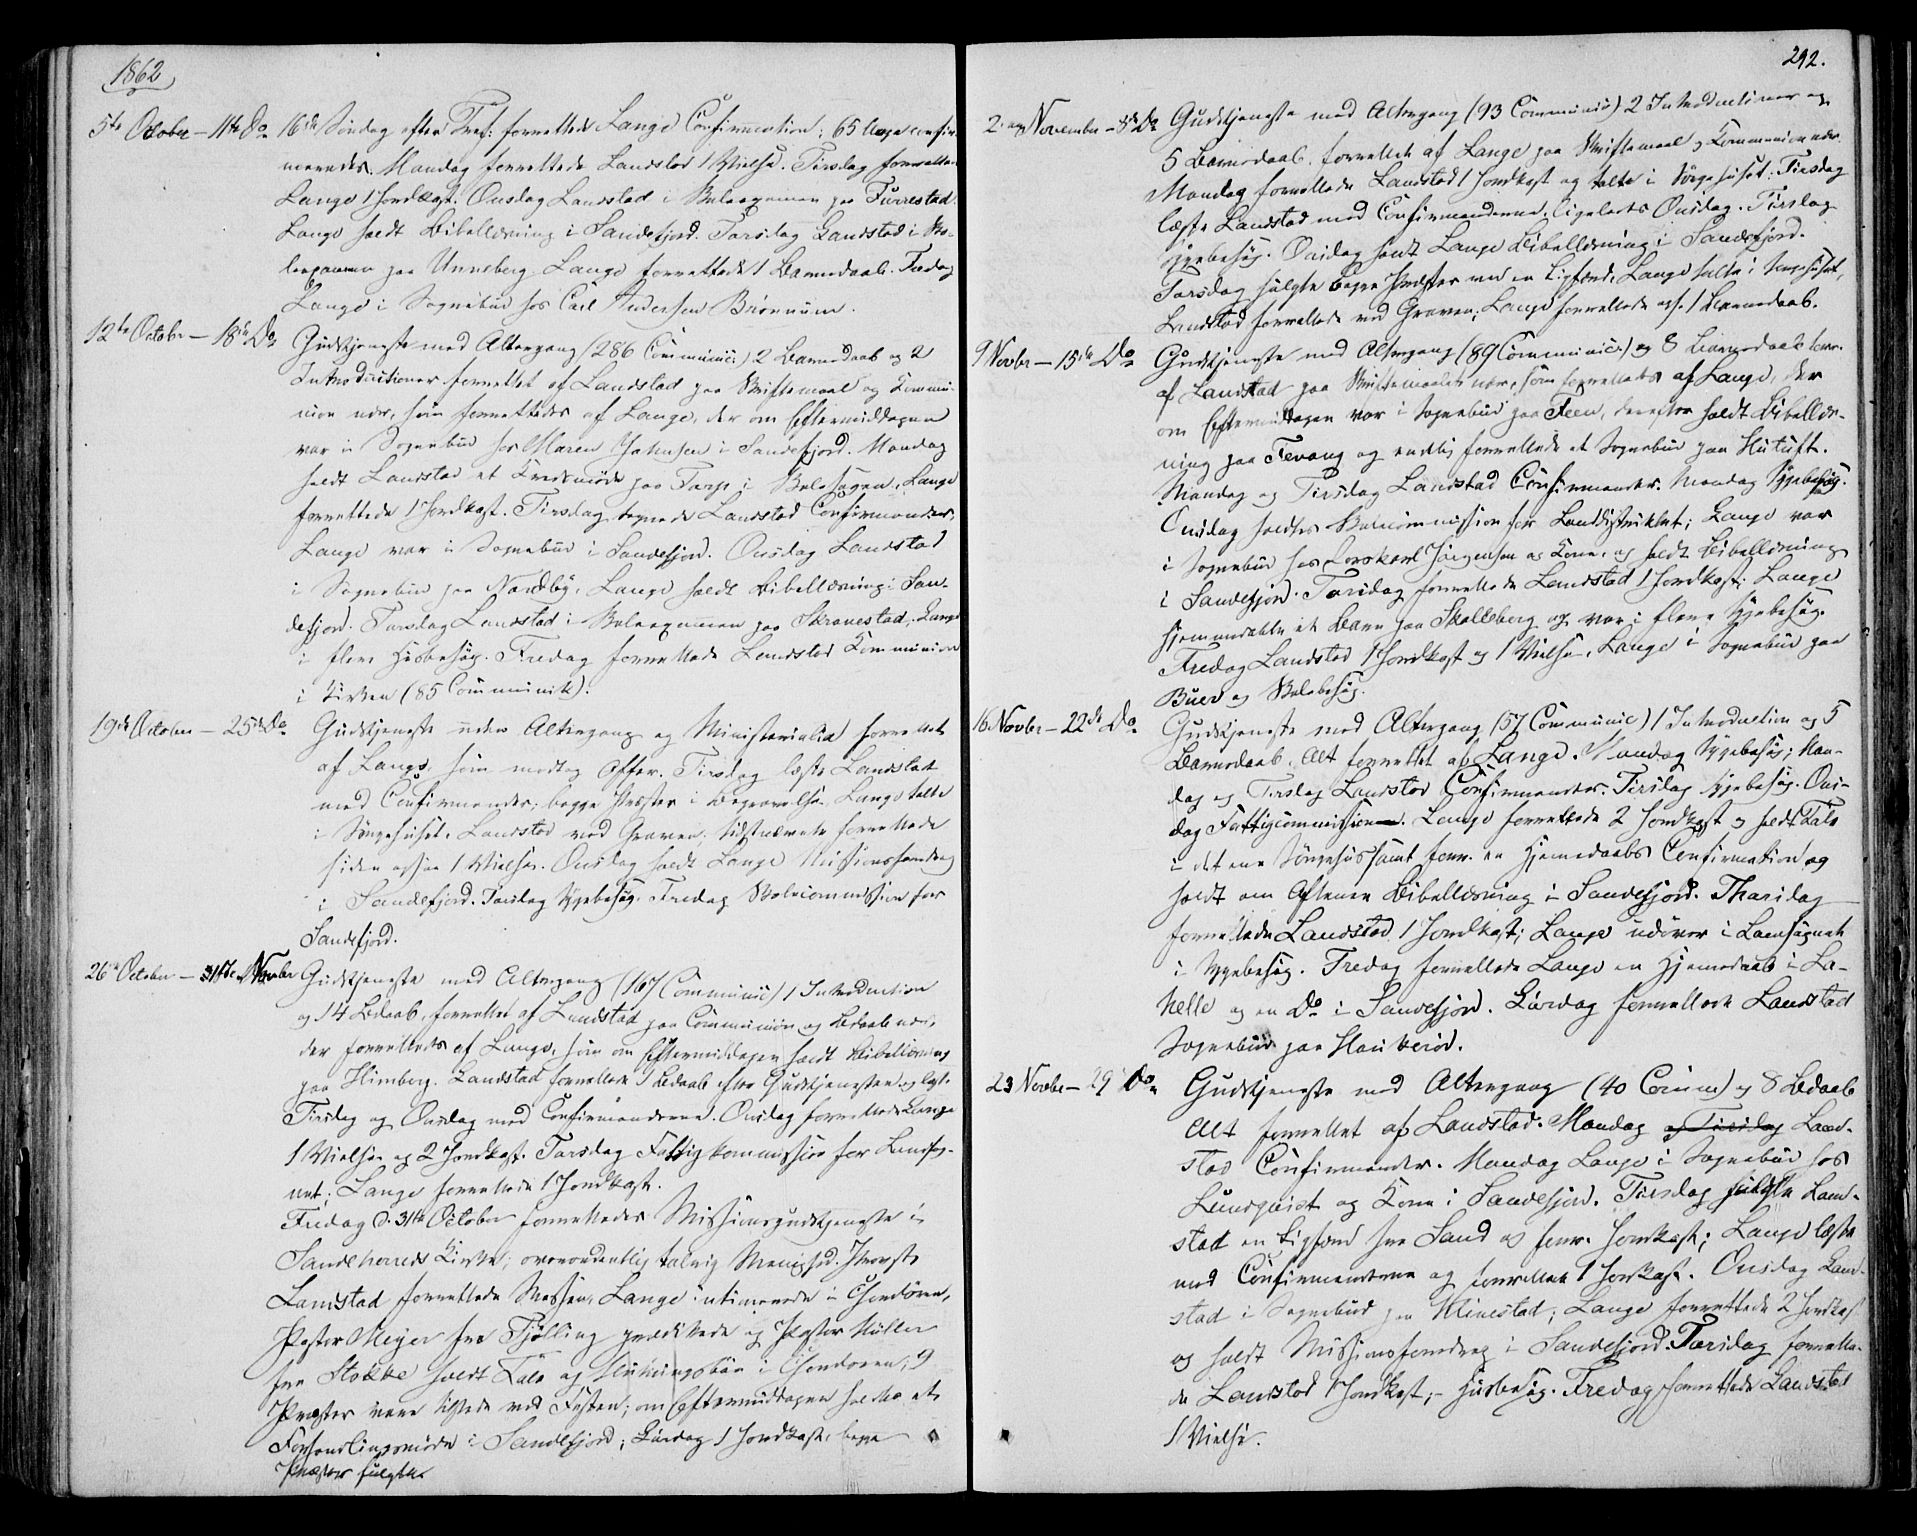 1862
5te October – 11te Do 16de Søndag efter Tref: forrettede Lange Confirmation; 65 Unge confir-
meredes. Mandag forrettede Landstad 1 Vielse. Tirsdag forrettede
Lange 1 Jordkast. Onsdag Landstad i Skoleexamen paa Furrestad.
Lange holdt Bibellæsning i Sandefjord. Torsdag Landstad i Sko-
leexamen paa Unneberg. Lange forrettede 1 Barnedaab. Fredag
Lange i Sognebud hos Carl Andersen Brønnum.
12te October – 18de Do Gudstjeneste med Altergang (286 Communic:) 2 Barnedaab og 2
Introductioner forrettet af Landstad paa Skriftemaal og Kommu-
nion nær, som forrettedes af Lange, der om Eftermiddagen
var i Sognebud hos Maren Johnsen i Sandefjord. Mandag
holdt Landstad et Kredsmøde paa Torp i Skolesagen. Lange
forrettede 1 Jordkast. Tirsdag Landstad Confirmander,
Lange var i Sognebud i Sandefjord. Onsdag Landstad
i Sognebud paa Nordby, Lange holdt Bibellæsning i San-
defjord. Torsdag Landstad i Skoleexamen paa Skravestad, Lange
i flere Husbesøg. Fredag forrettede Landstad Kommunion
i Kirken (85 Communik).
19de October – 25de Do Gudstjeneste uden Altergang og Ministerialia forrettet
af Lange, som modtog Offer. Tirsdag læste Landstad
med Confirmander; begge Præster i Begravelse. Lange talte
i Sørgehuset, Landstad ved Graven; sidstnævnte forrettede
siden ogsaa 1 Vielse. Onsdag holdt Lange Missionsforedrag
i Sandefjord. Torsdag Sygebesøg. Fredag Skolecommission for
Sandefjord.
26de October – Novbr Gudstjeneste med Altergang (167 Communic) 1 Introduction
og 14 Bdaab, forrettet af Landstad paa Communion og Bdaab nær,
der forrettedes af Lange, som om Eftermiddagen holdt Bibellæsning
paa Himberg. Landstad forrettede 1 Bdaab efter Gudstjenesten og læste
Tirsdag og Onsdag med Confirmanderne. Onsdag forrettede Lange
1 Vielse og 2 Jordkast. Torsdag Fattigkommission for Landsog-
net; Lange forrettede 1 Jordkast.
Fredag d. 31te October forrettedes Missionsgudstjeneste i
Sandeherreds Kirke; overordentlig talrig Menighed. Provst
Landstad forrettede Messen, Lange intimerede i Chordøren,
Pastor Meyer fra Tjølling prædikede og Pastor Müller
fra Stokke holdt Tale og Slutningsbøn i Chordøren; 9
Præster vare tilstede ved Festen; om Eftermiddagen holdtes et
Forhandlingsmøde i Sandefjord; Lørdag 1 Jordkast, begge
Præster fulgte.
292.
2. November – 8de Do Gudstjeneste med Altergang (93 Communic) 2 Introductioner og
5 Barnedaab, forrettet af Lange paa Skriftemaal og Kommunion nær.
Mandag forrettede Landstad 1 Jordkast og talte i Sørgehuset. Tirsdag
læste Landstad med Confirmanderne, ligeledes Onsdag. Tirsdag
Sygebesøg. Onsdag holdt Lange Bibellæsning i Sandefjord.
Torsdag fulgte begge Præster med en Ligfærd. Lange talte i Sørgehuset,
Landstad forrettede ved Graven; Lange forrettede ogs. 1 Barnedaab.
9 Novbr – 15de Do Gudstjeneste med Altergang (89 Communic:) og 8 Barnedaab forr.
af Landstad paa Skriftemaalet nær, som forrettedes af Lange, der
om Eftermiddagen var i Sognebud paa Feen, derefter holdt Bibellæs-
ning paa Fevang og endelig forrettede et Sognebud paa Hutuft.
Mandag og Tirsdag Landstad Confirmander. Mandag Sygebesøg.
Onsdag holdtes Skolecommission for Landdistriktet; Lange var
i Sognebud hos Jørgensen og Kone, og holdt Bibellæsning
i Sandefjord. Torsdag forrettede Landstad 1 Jordkast. Lange
hjemmedøbte et Barn paa Skolleborg og var i flere Sygebesøg.
Fredag Landstad 1 Jordkast og 1 Vielse, Lange i Sognebud paa
Buer og Skolebesøg.
16 Novbr – 22de Do Gudstjeneste med Altergang (57 Communic) 1 Introduction og 5
Barnedaab, Alt forrettet af Lange. Mandag Sygebesøg; Man-
dag og Tirsdag Landstad Confirmander. Tirsdag Sygebesøg. Ons-
dag Fattigcommission. Lange forrettede 2 Jordkast og holdt Tale
i det ene Sørgehus samt forr. en Hjemmedaabs Confirmation og
holdt om Aftenen Bibellæsning i Sandefjord. Thorsdag
forrettede Landstad 1 Jordkast; Lange udøver i Landsognet
i Sygebesøg. Fredag forrettede Lange en Hjemmedaab i La-
helle og en Do i Sandefjord. Lørdag forrettede Landstad
Sognebud paa Haukerød.
23 Novbr – 29 Do Gudstjeneste med Altergang (40 Comm) og 8 Bdaab
Alt forrettet af Landstad. Mandag og Tirsdag Land-
stad Confirmander. Mandag Lange i Sognebud hos
Lundqvist og Kone i Sandefjord. Tirsdag fulgte Land-
stad en Ligfærd fra Sand og forr. Jordkast; Lange læste
med Confirmanderne og forrettede 1 Jordkast. Onsdag Land-
stad i Sognebud paa Klinestad; Lange forrettede 2 Jordkast
og holdt Missionsforedrag i Sandefjord. Torsdag forrette-
de Landstad 1 Jordkast; – Husbesøg. Fredag forrettede Landstad
1 Vielse.